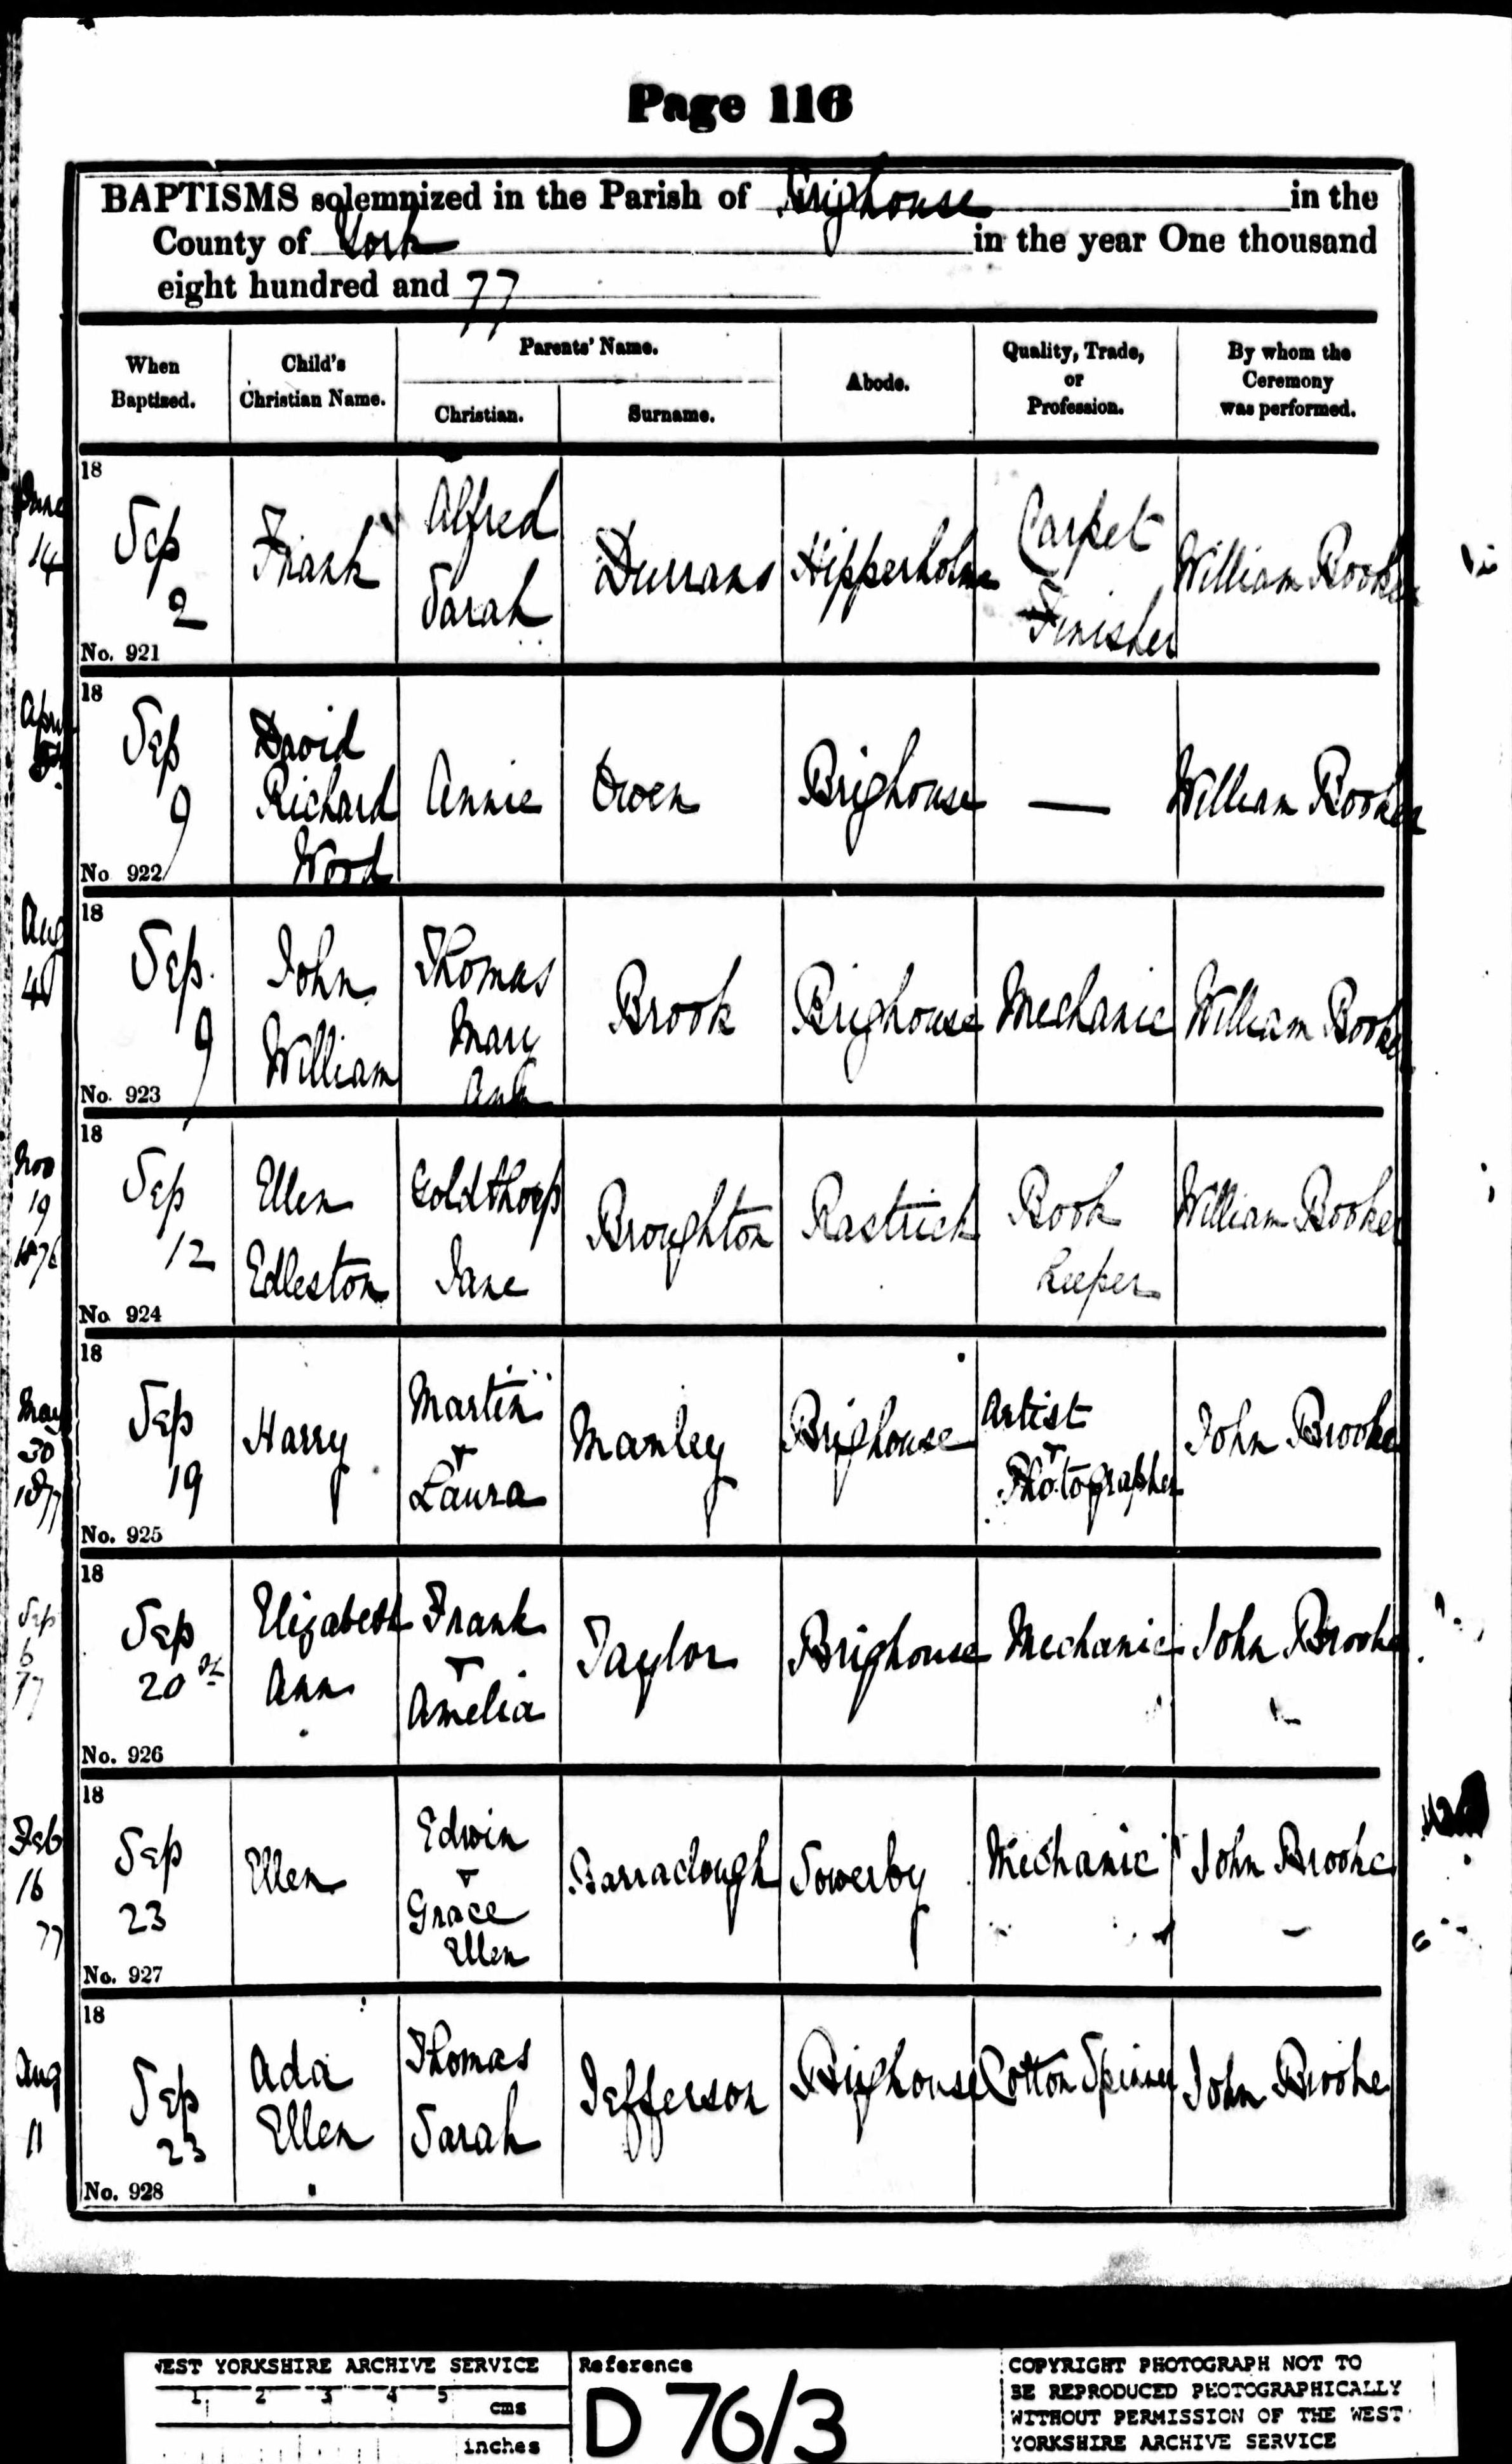 Page 116
BAPTISMS solemnized in the Parish of Brighouse in the
County of York in the year One thousand
eight hundred and 77
When Baptized.
Child's Christian Name.
Parents' Name.
Christian.
Surname.
Abode.
Quality, Trade, or Profession.
By whom the Ceremony was performed.
June
14
18
Sep
2
No. 921
Frank
Alfred
Sarah
Durrans
Hipperholme
Carpet
Finisher
William Booker
April
18
Sep
9
No 922
David
Richard
Wood
Annie
Owen
Brighouse
—
William Booker
Aug
18
Sep.
9
No. 923
John
William
Thomas
Mary
Ann
Brook
Brighouse
Mechanic
William Booker
Nov
19
1876
18
Sep
12
No 924
Ellen
Edleston
Goldthorp
Jane
Broughton
Rastrick
Book
Keeper
William Booker
May
30
1877
18
Sep
19
No. 925
Harry
Martin
+
Laura
Manley
Brighouse
Artist
+
Photographer
John Brooke
Sep
6
77
18
Sep
20
No. 926
Elizabeth
Ann
Frank
+
Amelia
Taylor
Brighouse
Mechanic
John Brooke
Feb
16
77
18
Sep
23
No. 927
Ellen
Edwin
+
Grace
Ellen
Barraclough
Sowerby
Mechanic
John Brooke
Aug
11
18
Sep
23
No. 928
Ada
Ellen
Thomas
Sarah
Jefferson
Brighouse
Cotton Spinner
John Brooke
WEST YORKSHIRE ARCHIVE SERVICE
1 2 3 4 5
cms
inches
Reference
D 76/3
COPYRIGHT PHOTOGRAPH NOT TO
BE REPRODUCED PHOTOGRAPHICALLY
WITHOUT PERMISSION OF THE WEST
YORKSHIRE ARCHIVE SERVICE